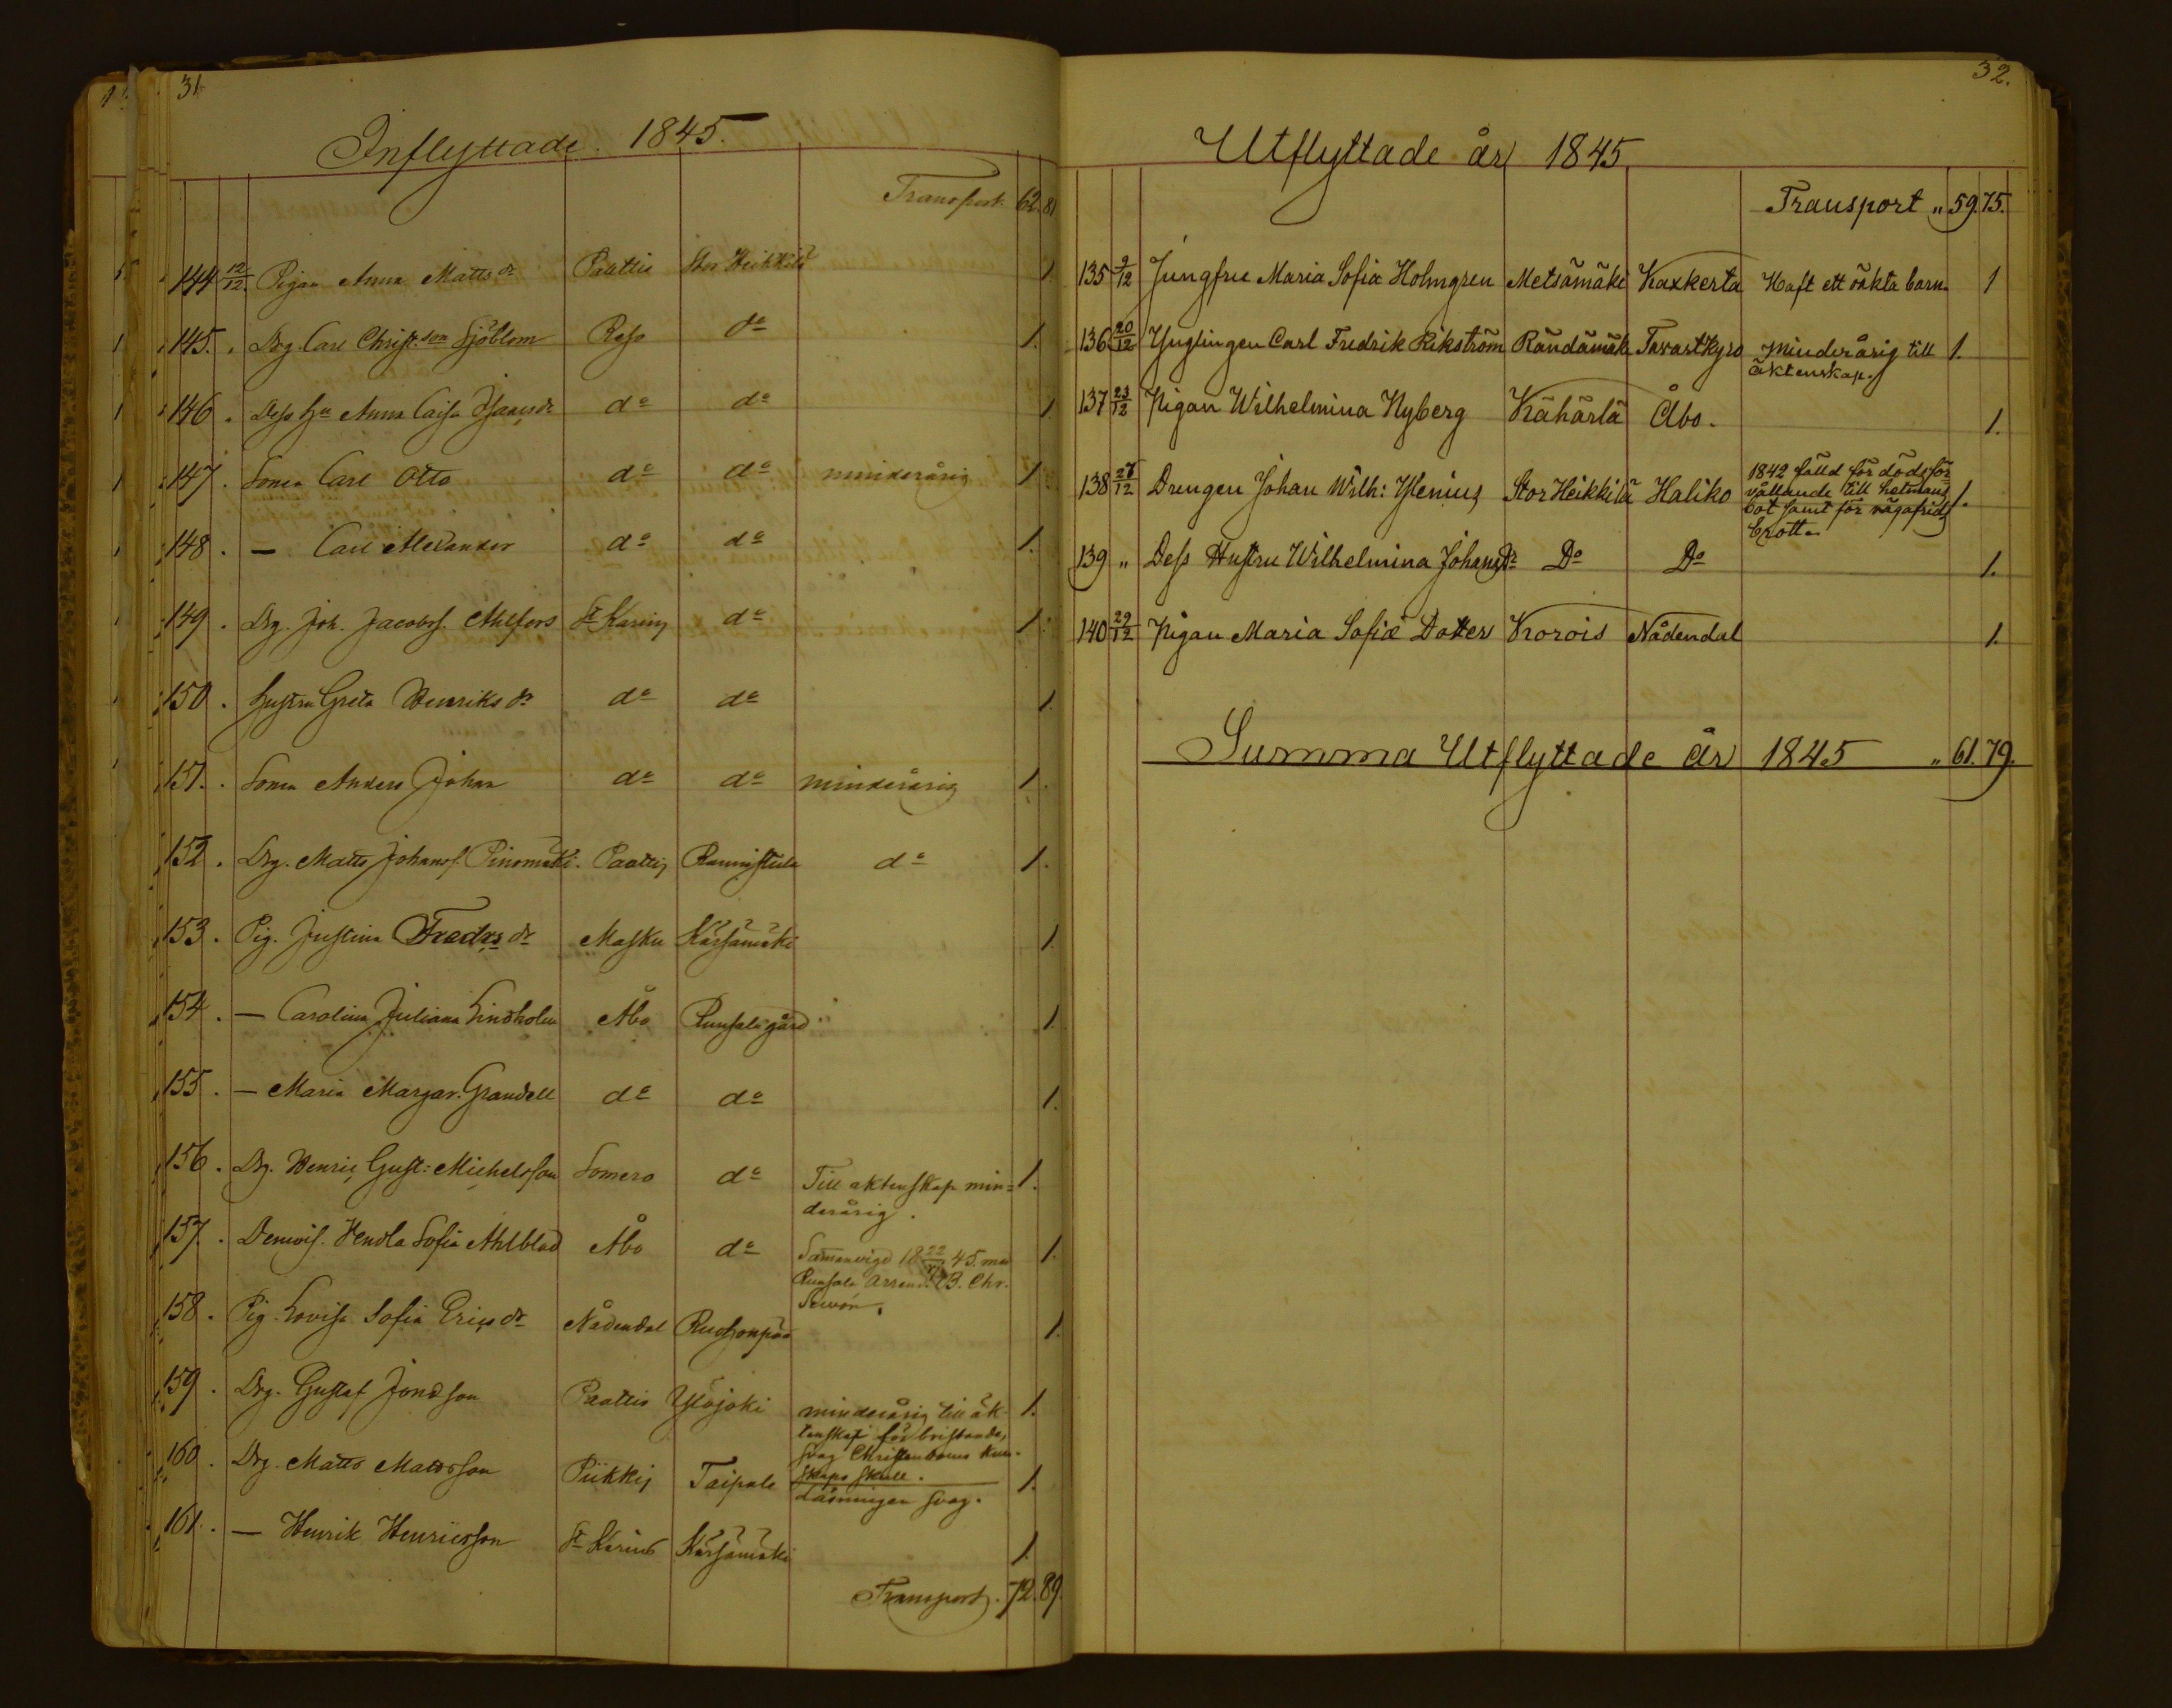 31
Inflyttade. 1845.
Transport. 62. 81
144 12/12. Pigan Anna Matts dr Paattis Stor Heikkilä 1
145. Drg. Carl Christ.son Sjöblom Reso do 1.
146. Dess hu Anna Caisa Isaacsdr do do 1
147. Sonen Carl Otto do do minderårig 1
148. — Carl Alexander do do 1.
149. Drg. Joh. Jacobss. Ahlfors St Karins do 1
150. Hustru Greta Henriks dr do do 1
151. Sonen Anders Johan do do minderårig 1
152. Drg. Matts Johanss. Pinomäki. Paattis Raunistula do 1.
153. Pig. Justina Fredrs dr Masku Kärsämäki 1.
154. — Carolina Juliana Lindholm Åbo Runsala gård 1.
155. — Maria Margar. Grandell do do 1.
156. Dg. Henric Gust: Michelsson Somero do Till äktenskap min= 1.
derårig.
157. Demois. Hendla Sofia Ahlblad Åbo do Sammanvigd 18 22 45. med 1.
Runsala Arrend. B. Chr.
158. Pig. Lovisa Sofia Erics dr Nådendal 1.
159. Drg. Gustaf Jonasson Paattis Yläjoki minderårig till äk- 1.
tenskap för bristande,
svag Christendoms kun-
skaps skull.
160. Drg. Matts Mattsson Piikkis Taipale 1.
Läsningen svag.
161. — Henrik Henricsson St Karins Kärsämäki 1
Transport. 72. 89.
32.
Utflyttade år 1845
Transport „ 59. 75.
135 9/12 Jungfru Maria Sofia Holmgren Metsämäki Kaxkerta Haft ett oäkta barn 1
136 20/12 Ynglingen Carl Fredrik Rikström Rändämäki Tavastkyro minderårig till 1.
äktenskap.
137 23/12 Pigan Wilhelmina Nyberg Kähärlä Åbo. 1.
138 27/12 Drengen Johan Wilh: Ylenius Stor Heikkilä Haliko 1842 fälld för dödsför=
vållande till hel mans
bot samt för vägafrids 1.
brott.
139 „ Dess Hustru Wilhelmina Johansdr Do Do 1.
140 29/12 Pigan Maria Sofia Dotter Korois Nådendal 1.
Summa Utflyttade år 1845 „ 61. 79.